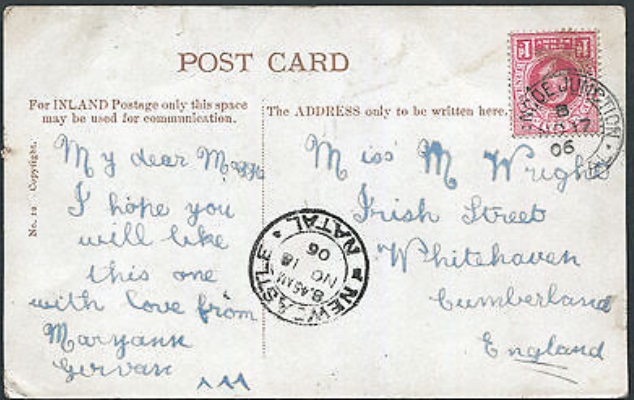 POST CARD
For INLAND Postage only this space
may be used for communication.
The ADDRESS only to be written here.
No. 12 Copyright.
My dear
I hope you
will like
this one
with love from
Maryann
Gervan
Miss M Wright
Irish Street
Whitehaven
Cumberland
England
1 1
JUNCTION
8
NO 17
06
NEWCASTLE
NATAL
8.45 AM
NO 18
06